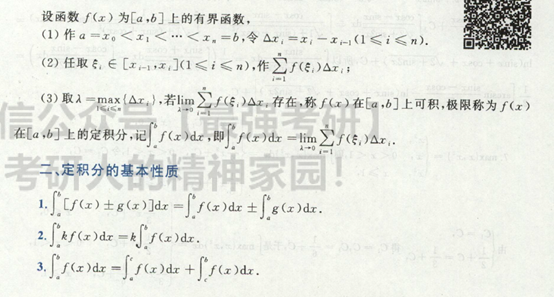 设函数 f(x) 为[a,b]上的有界函数,
(1) 作 a = x₀ < x₁ < ⋯ < xₙ = b, 令 Δxᵢ = xᵢ − xᵢ₋₁ (1 ≤ i ≤ n).
(2) 任取 ξᵢ ∈ [xᵢ₋₁, xᵢ] (1 ≤ i ≤ n), 作 ∑ᵢ₌₁ⁿ f(ξᵢ)Δxᵢ;
(3) 取 λ = max_{1≤i≤n} {Δxᵢ}, 若 lim_{λ→0} ∑ᵢ₌₁ⁿ f(ξᵢ)Δxᵢ 存在, 称 f(x) 在[a,b]上可积, 极限称为 f(x)
在[a,b]上的定积分, 记∫ₐᵇ f(x)dx, 即∫ₐᵇ f(x)dx = lim_{λ→0} ∑ᵢ₌₁ⁿ f(ξᵢ)Δxᵢ.
二、定积分的基本性质
1. ∫ₐᵇ [f(x) ± g(x)]dx = ∫ₐᵇ f(x)dx ± ∫ₐᵇ g(x)dx.
2. ∫ₐᵇ kf(x)dx = k∫ₐᵇ f(x)dx.
3. ∫ₐᵇ f(x)dx = ∫ₐᶜ f(x)dx + ∫꜀ᵇ f(x)dx.
考研人的精神家园!